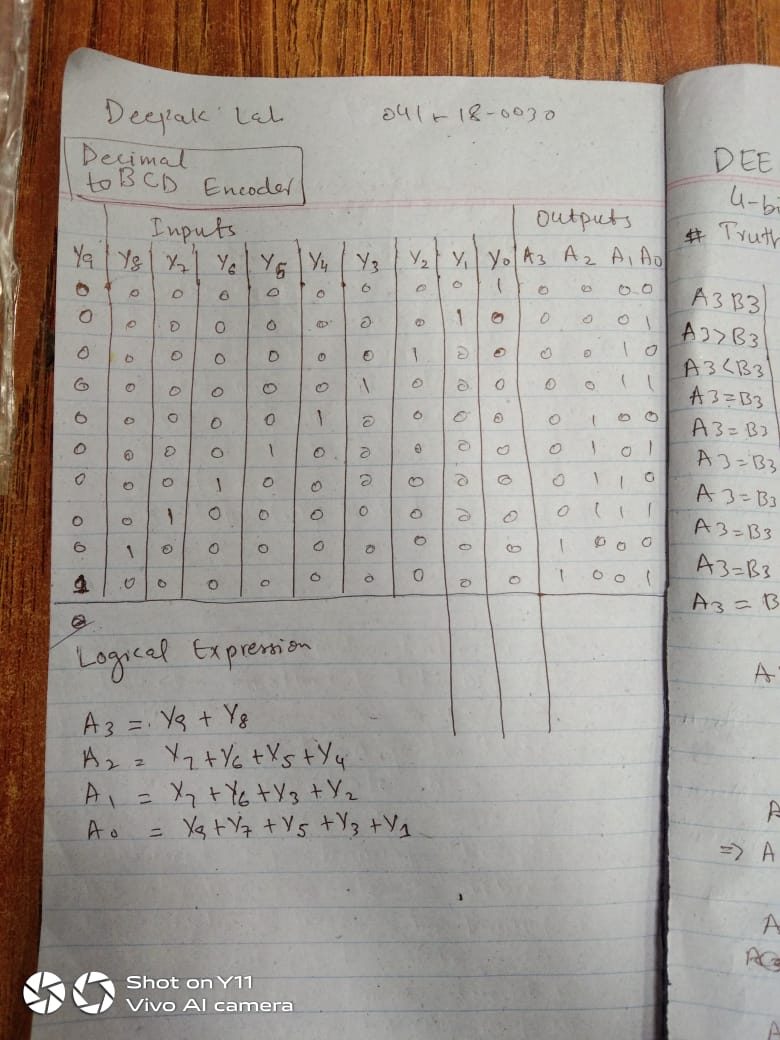 Deepak Lal 041-18-0030
Decimal
to BCD Encoder
Inputs Outputs
Y9 Y8 Y7 Y6 Y5 Y4 Y3 Y2 Y1 Y0 A3 A2 A1 A0
0 0 0 0 0 0 0 0 0 1 0 0 0 0
0 0 0 0 0 0 0 0 1 0 0 0 0 1
0 0 0 0 0 0 0 1 0 0 0 0 1 0
0 0 0 0 0 0 1 0 0 0 0 0 1 1
0 0 0 0 0 1 0 0 0 0 0 1 0 0
0 0 0 0 1 0 0 0 0 0 0 1 0 1
0 0 0 1 0 0 0 0 0 0 0 1 1 0
0 0 1 0 0 0 0 0 0 0 0 1 1 1
0 1 0 0 0 0 0 0 0 0 1 0 0 0
1 0 0 0 0 0 0 0 0 0 1 0 0 1
Logical Expression
A3 = Y9 + Y8
A2 = Y7+Y6+Y5+Y4
A1 = Y7+Y6+Y3+Y2
A0 = Y9+Y7+Y5+Y3+Y1
DEE
4-bi
# Truth
A3 B3
A3>B3
A3<B3
A3=B3
A3=B3
A3=B3
A3=B3
A3=B3
A3=B3
A3 = B
A
A
=> A
A
A
Shot on Y11
Vivo AI camera